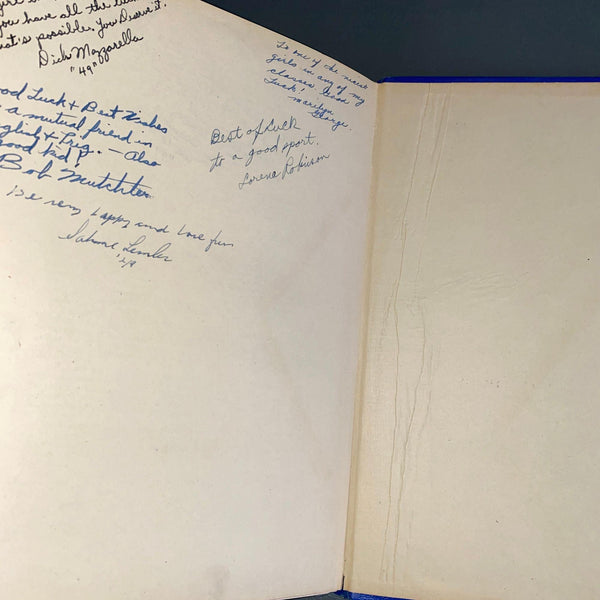 you have all the
that's possible. You Deserve it.
Dick Mazzarella
"49"
ood Luck & Best Wishes
a mutual friend in
glish & Trig. — Also
good kid!
Bob Mutchler
Be very happy and have fun
'49
To one of the nicest
girls in any of my
classes. Good
Luck!
Marilyn
George.
Best of Luck
to a good sport.
Lorena Robinson